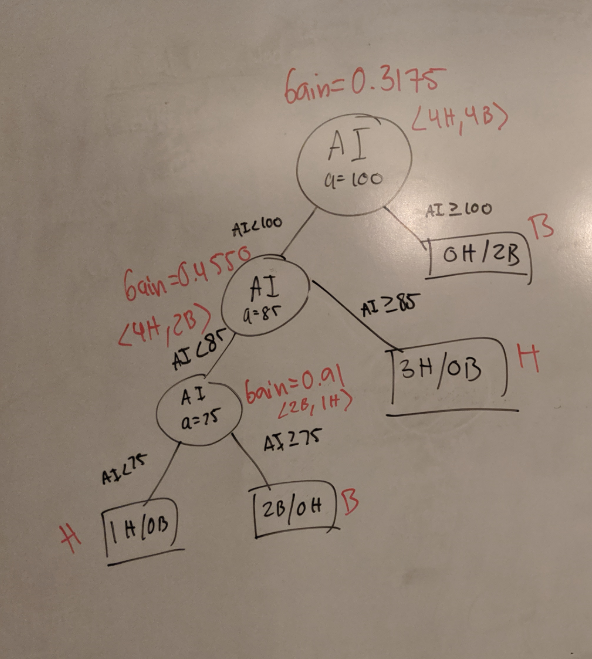 Gain=0.3175
⟨4H,4B⟩
AI
a=100
AI<100
AI≥100
B
0H/2B
Gain=0.4550
⟨4H,2B⟩
AI
a=85
AI<85
AI≥85
3H/0B
H
AI
a=75
Gain=0.91
⟨2B,1H⟩
AI<75
AI≥75
H
1H/0B
2B/0H
B